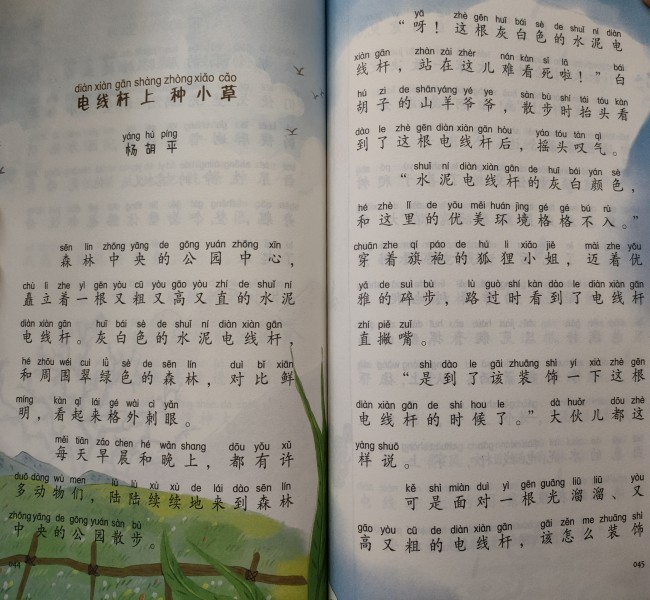 diàn xiàn gān shàng zhòng xiǎo cǎo
电线杆上种小草
yáng hú píng
杨胡平
sēn lín zhōng yāng de gōng yuán zhōng xīn
森林中央的公园中心，
chù lì zhe yì gēn yòu cū yòu gāo yòu zhí de shuǐ ní
矗立着一根又粗又高又直的水泥
diàn xiàn gān huī bái sè de shuǐ ní diàn xiàn gān
电线杆。灰白色的水泥电线杆，
hé zhōu wéi cuì lǜ sè de sēn lín duì bǐ xiān
和周围翠绿色的森林，对比鲜
míng kàn qǐ lái gé wài cì yǎn
明，看起来格外刺眼。
měi tiān zǎo chen hé wǎn shang dōu yǒu xǔ
每天早晨和晚上，都有许
duō dòng wù men lù lù xù xù de lái dào sēn lín
多动物们，陆陆续续地来到森林
zhōng yāng de gōng yuán sàn bù
中央的公园散步。
044
yā zhè gēn huī bái sè de shuǐ ní diàn
“呀！这根灰白色的水泥电
xiàn gān zhàn zài zhèr nán kàn sǐ la bái
线杆，站在这儿难看死啦！”白
hú zi de shān yáng yé ye sàn bù shí tái tóu kàn
胡子的山羊爷爷，散步时抬头看
dào le zhè gēn diàn xiàn gān hòu yáo tóu tàn qì
到了这根电线杆后，摇头叹气。
shuǐ ní diàn xiàn gān de huī bái yán sè
“水泥电线杆的灰白颜色，
hé zhè lǐ de yōu měi huán jìng gé gé bú rù
和这里的优美环境格格不入。”
chuān zhe qí páo de hú li xiǎo jiě mài zhe yōu
穿着旗袍的狐狸小姐，迈着优
yǎ de suì bù lù guò shí kàn dào le diàn xiàn gān
雅的碎步，路过时看到了电线杆
zhí piě zuǐ
直撇嘴。
shì dào le gāi zhuāng shì yí xià zhè gēn
“是到了该装饰一下这根
diàn xiàn gān de shí hou le dà huǒr dōu zhè
电线杆的时候了。”大伙儿都这
yàng shuō
样说。
kě shì miàn duì yì gēn guāng liū liū yòu
可是面对一根光溜溜、又
gāo yòu cū de diàn xiàn gān gāi zěn me zhuāng shì
高又粗的电线杆，该怎么装饰
045